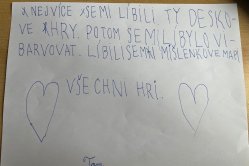 NEJVÍCE SEMI LÍBILI TY DESKO-
VE HRY. POTOM SEMI LÍBYLO VI-
BARVOVAT. LÍBILI SEMNI MIŠLENKOVE MAPI
VŠECHNI HRÍ.